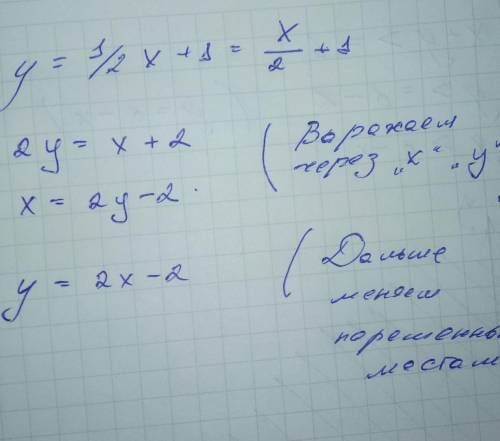 y = 1/2 x + 1 = x/2 + 1
2y = x + 2 (Выражаем
через „x“ „y“
x = 2y - 2.
y = 2x - 2 (Дальше
меняем
местам